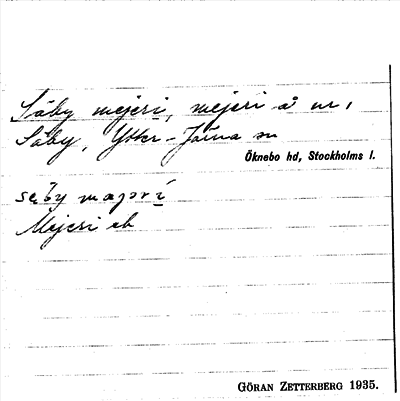 Säby mejeri, mejeri å nr 1
Säby, Ytter-Järna sn
Öknebo hd, Stockholms l.
sęby majri
Mejeri eb
GÖRAN ZETTERBERG 1935.